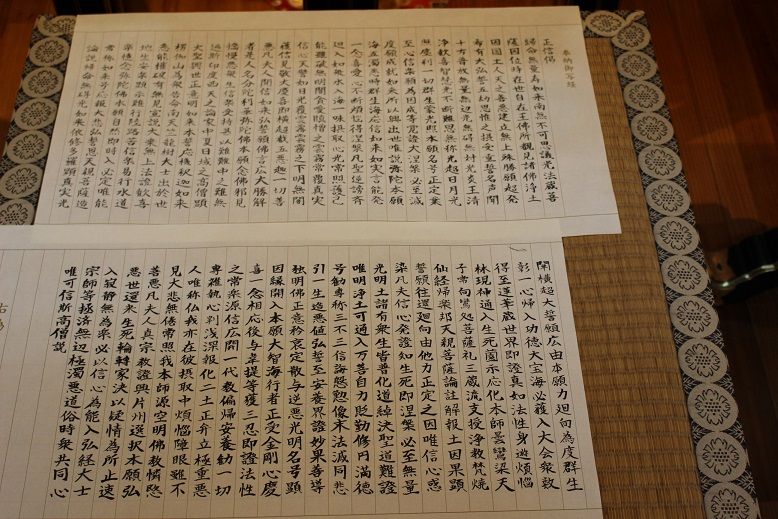 奉納御写経
正信偈
帰命無量寿如来南無不可思議光法蔵菩
薩因位時在世自在王佛所覩見諸佛浄土
因国土人天之善悪建立無上殊勝願超発
希有大弘誓五劫思惟之摂受重誓名声聞
十方普放無量無辺光無碍無対光炎王清
浄歓喜智慧光不断難思無称光超日月光
照塵刹一切群生蒙光照本願名号正定業
至心信楽願為因成等覚證大涅槃必至滅
度願成就如来所以興出世唯説弥陀本願
海五濁悪時群生海応信如来如実言能発
一念喜愛心不断煩悩得涅槃凡聖逆謗斉
廻入如衆水入海一味摂取心光常照護已
能雖破無明闇貪愛瞋憎之雲霧常覆真実
信心天譬如日光覆雲霧雲霧之下明無闇
獲信見敬大慶喜即横超截五悪趣一切善
悪凡夫人聞信如来弘誓願佛言広大勝解
者是人名分陀利華弥陀佛本願念佛邪見
憍慢悪衆生信楽受持甚以難難中之難無
過斯印度西天之論家中夏日域之高僧顕
大聖興世正意明如来本誓応機釈迦如来
楞伽山為衆告命南天竺龍樹大士出於世
悉能摧破有無見宣説大乗無上法證歓喜
地生安楽顕示難行陸路苦信楽易行水道
楽憶念弥陀佛本願自然即時入必定唯能
常称如来号応報大悲弘誓恩天親菩薩造
論説帰命無碍光如来依修多羅顕真実光
闡横超大誓願広由本願力廻向為度群生
彰一心帰入功徳大宝海必獲入大会衆数
得至蓮華蔵世界即證真如法性身遊煩悩
林現神通入生死薗示応化本師曇鸞梁天
子常向鸞処菩薩礼三蔵流支授浄教焚焼
仙経帰楽邦天親菩薩論註解報土因果顕
誓願往還廻向由他力正定之因唯信心惑
染凡夫信心発證知生死即涅槃必至無量
光明土諸有衆生皆普化道綽決聖道難證
唯明浄土可通入万善自力貶勤修円満徳
号勧専称三不三信誨慇懃像末法滅同悲
引一生造悪値弘誓至安養界證妙果善導
独明佛正意矜哀定散与逆悪光明名号顕
因縁開入本願大智海行者正受金剛心慶
喜一念相応後与韋提等獲三忍即證法性
之常楽源信広開一代教偏帰安養勧一切
専雑執心判浅深報化二土正弁立極重悪
人唯称仏我亦在彼摂取中煩悩障眼雖不
見大悲無倦常照我本師源空明佛教憐愍
善悪凡夫人真宗教證興片州選択本願弘
悪世還来生死輪転家決以疑情為所止速
入寂静無為楽必以信心為能入弘経大士
宗師等拯済無辺極濁悪道俗時衆共同心
唯可信斯高僧説